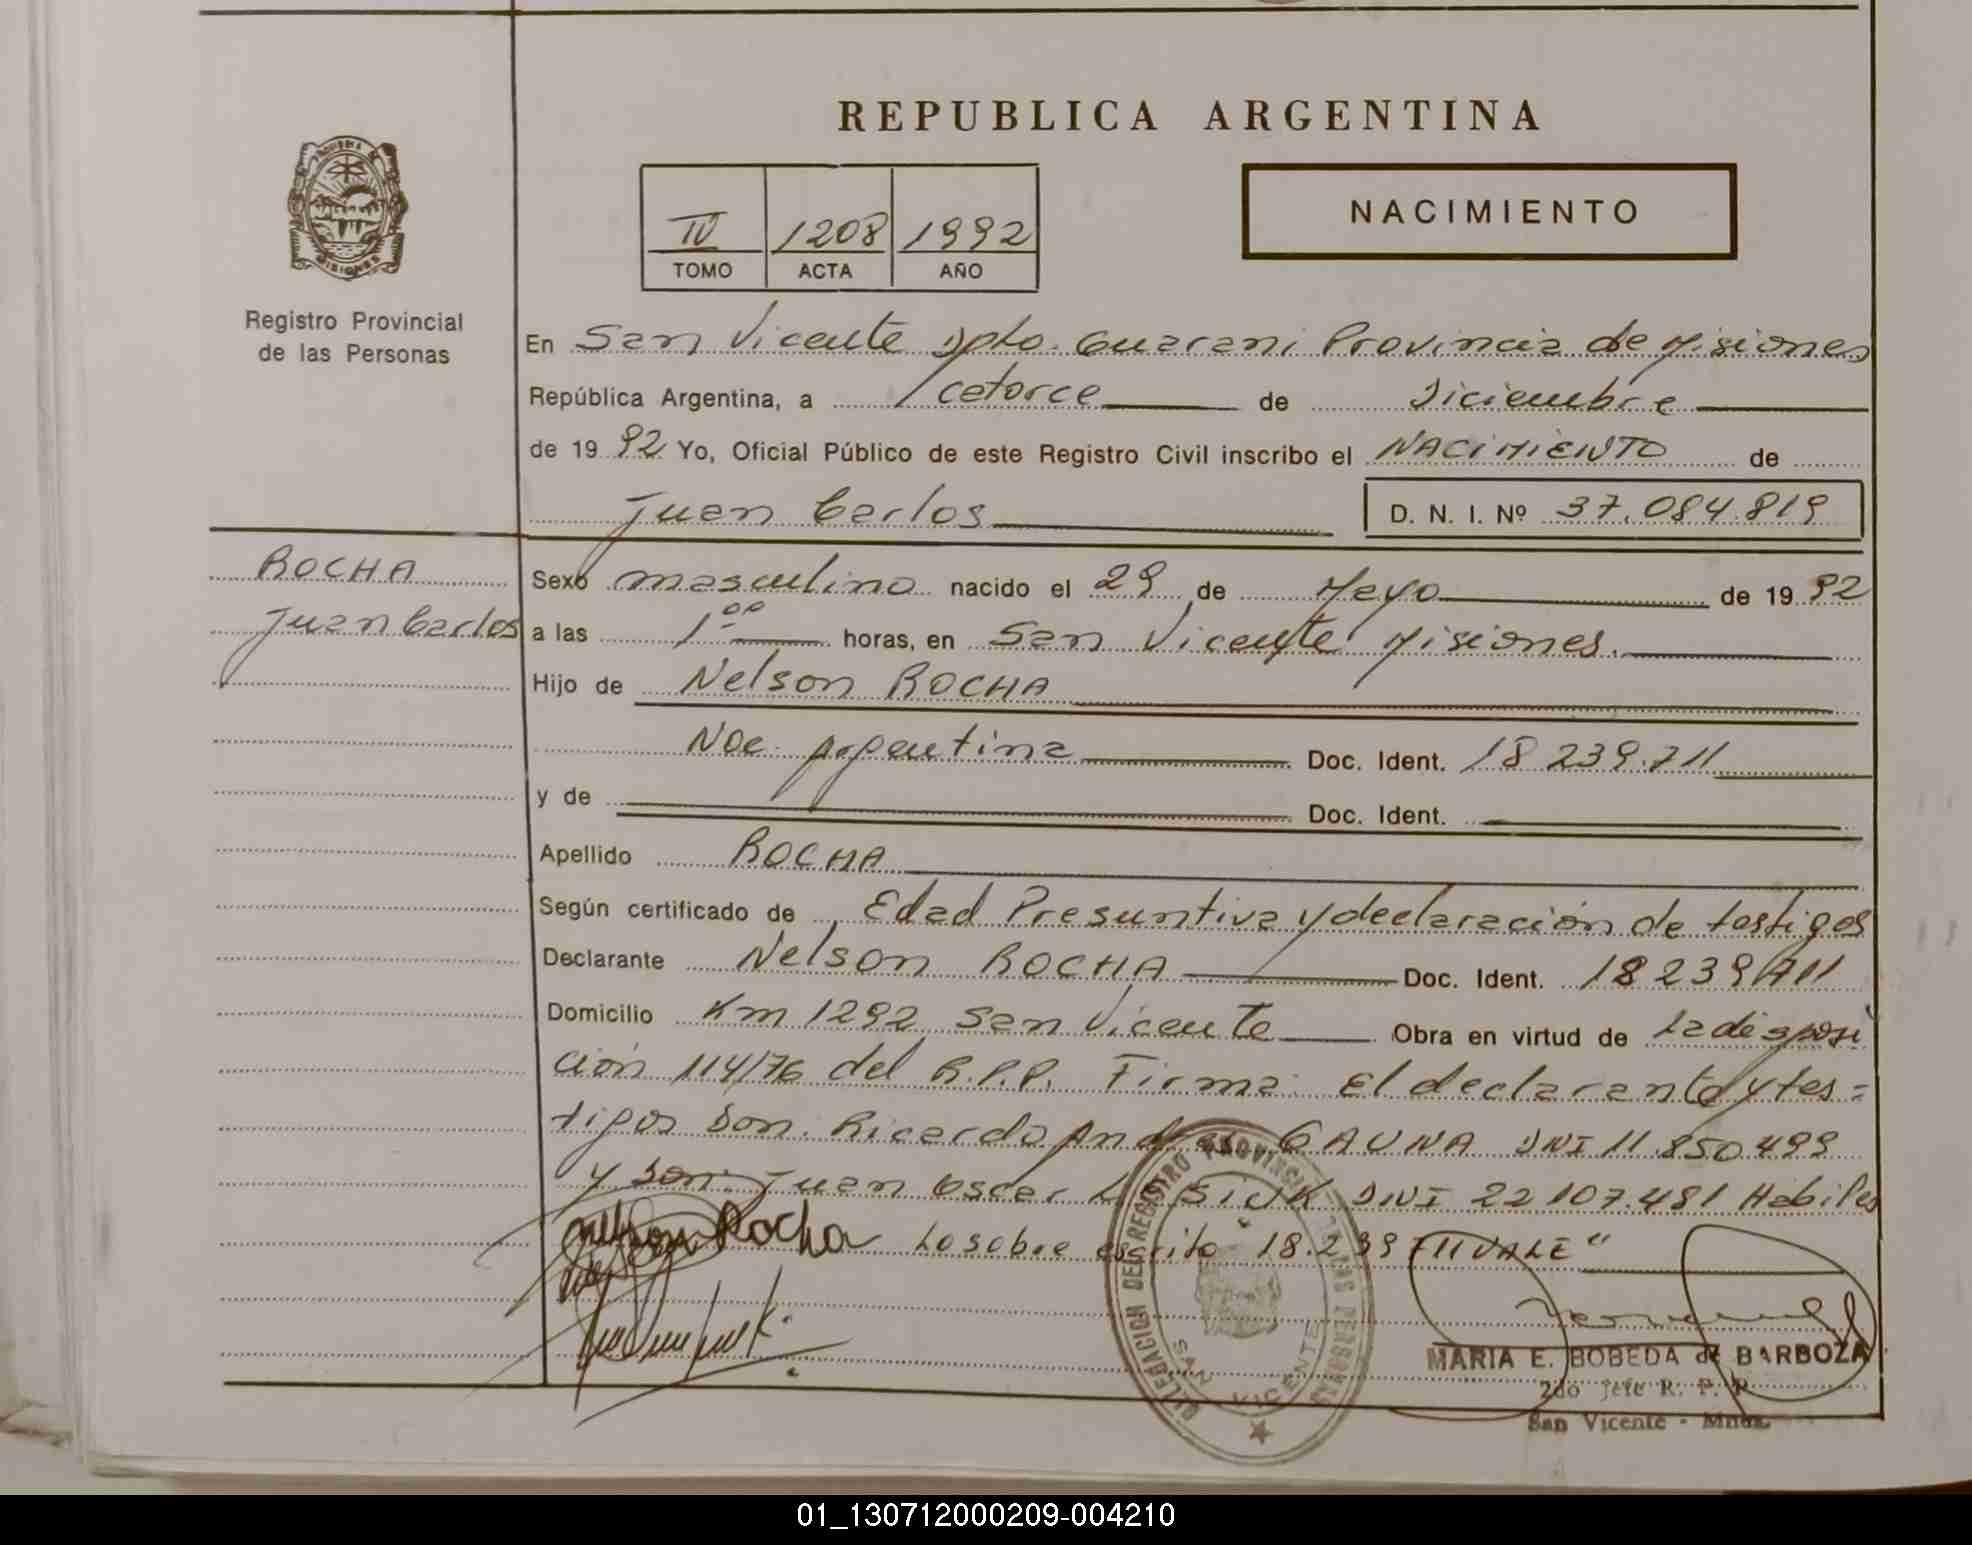 REPUBLICA ARGENTINA
PROVINCIA DE
MISIONES
Registro Provincial
de las Personas
IV 1208 1992
TOMO ACTA AÑO
NACIMIENTO
En San Vicente Dpto. Guarani Provincia de Misiones
República Argentina, a catorce de Diciembre
de 1992 Yo, Oficial Público de este Registro Civil inscribo el NACIMIENTO de
Juan Carlos D. N. I. Nº 37.084.819
ROCHA
Juan Carlos
Sexo masculino nacido el 29 de Mayo de 1992
a las 1 00 horas, en San Vicente Misiones.
Hijo de Nelson ROCHA
Nac. Argentina Doc. Ident. 18 239.711
y de Doc. Ident.
Apellido ROCHA
Según certificado de Edad Presuntiva y declaración de testigos
Declarante Nelson ROCHA Doc. Ident. 18 239 711
Domicilio Km 1292 San Vicente Obra en virtud de La disposi
ción 114/76 del R.P.P. Firma: El declarante y tes=
tigos Don: Ricardo Andres GAUNA DNI 11.850.499
y Don: Juan Oscar DNI 22 107.481 Habiles
Nelson Rocha Lo sobre escrito 18.239 711 VALE"
DELEGACION DEL REGISTRO PROVINCIAL DE LAS PERSONAS
SAN VICENTE
MARIA E. BOBEDA de BARBOZA
2do Jefe R. P. P.
San Vicente - Mnes.
01_130712000209-004210